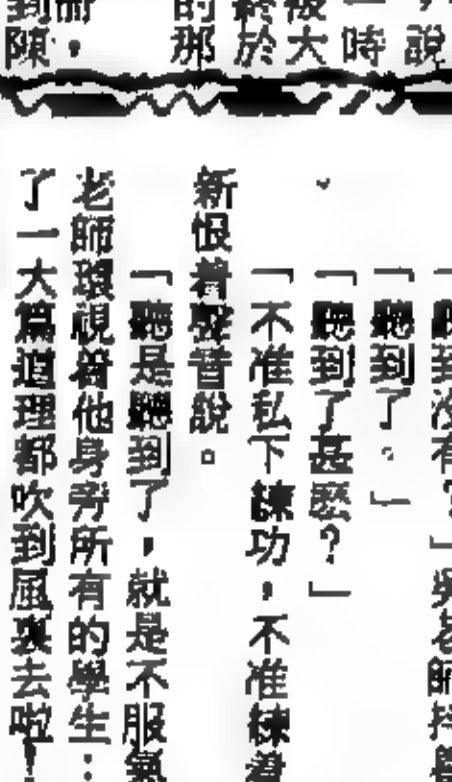 ，說
一時
被大
終於
的那
冊，
到陳
到沒有？」吳老師抖
「聽到了。」
「聽到了甚麽？」
「不准私下練功，不准練着
新恨着聲音說。
「聽是聽到了，就是不服氣
老師環視着他身旁所有的學生：
了一大篇道理都吹到風裏去啦！